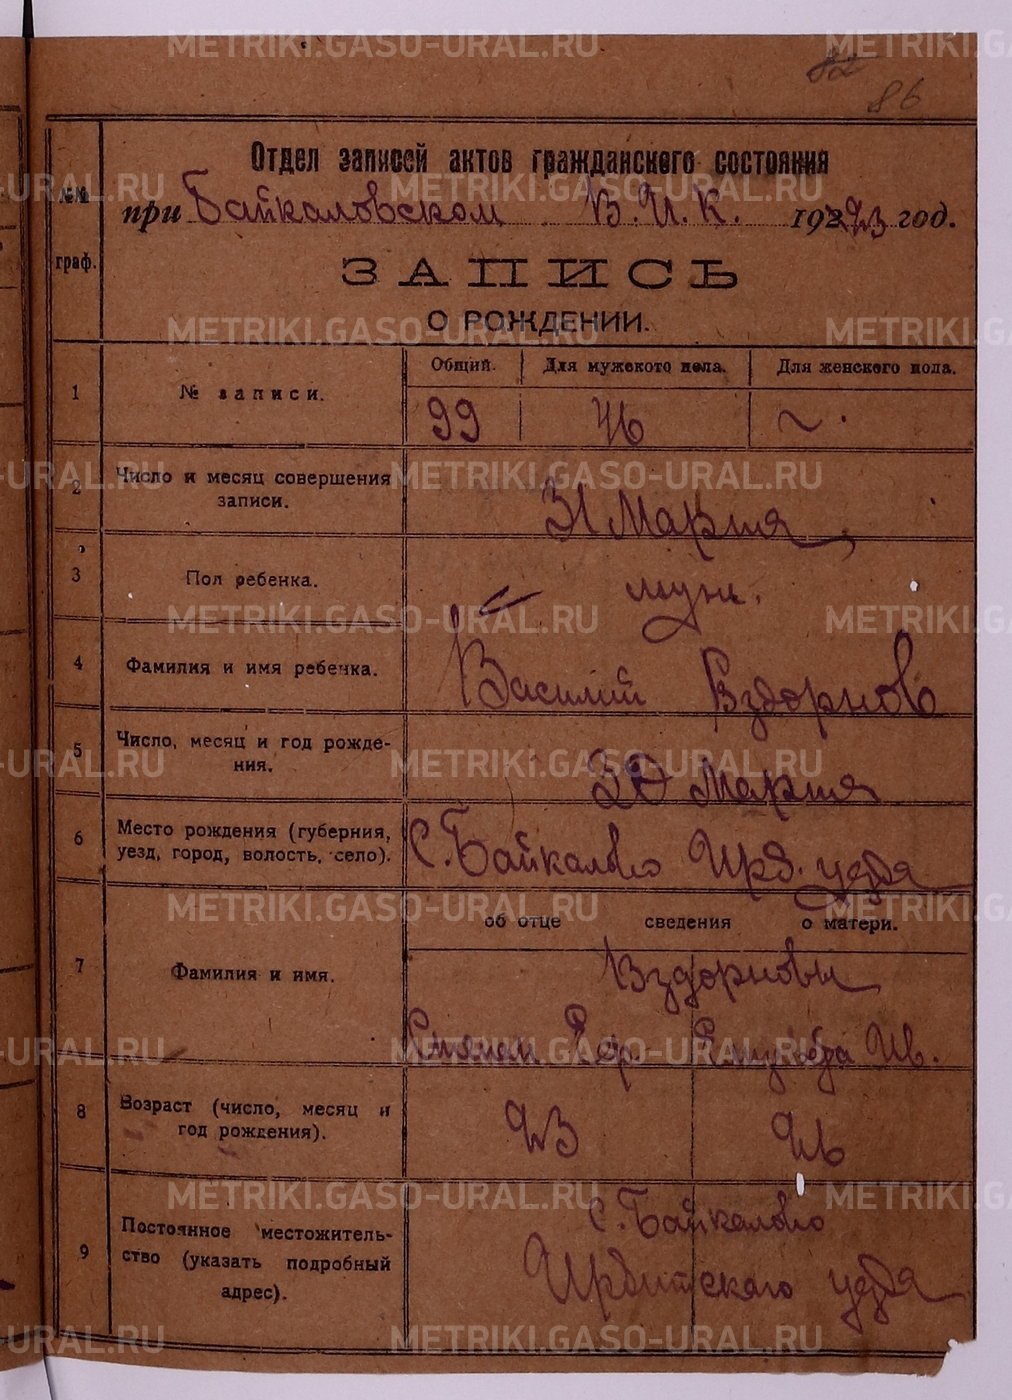 82
86
№№
граф.
Отдел записей актов гражданского состояния
при Байкаловском В.И.К. 1923 год.
ЗАПИСЬ
О РОЖДЕНИИ.
1 № записи. Общий. Для мужского пола. Для женского пола.
99
2 Число и месяц совершения записи. 31 Марта
3 Пол ребенка. муж.
4 Фамилия и имя ребенка. Василий Вздорнов
5 Число, месяц и год рожде-
ния. 30 Марта
6 Место рождения (губерния,
уезд, город, волость, село). С. Байкалово Ирб. уезда
об отце сведения о матери.
7 Фамилия и имя. Вздорновы
Ив.
8 Возраст (число, месяц и
год рождения). 23
9 Постоянное местожитель-
ство (указать подробный
адрес).
с. Байкалово
Ирбитскаго уезда
METRIKI.GASO-URAL.RU